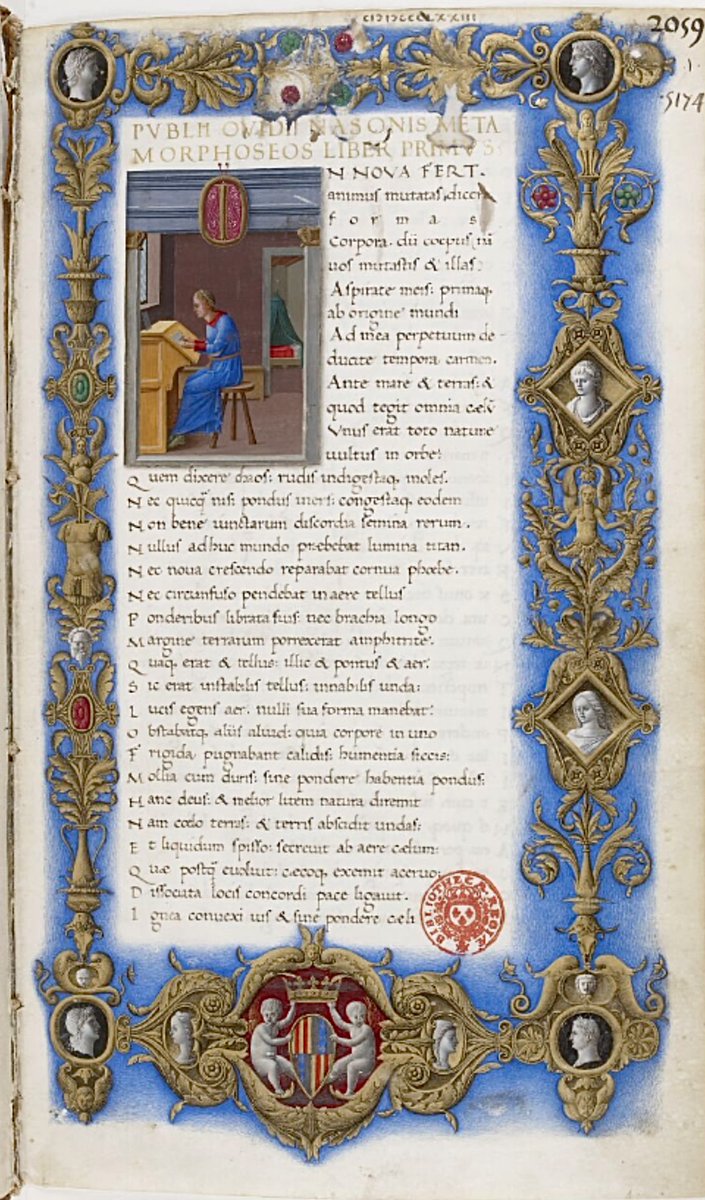 CIƆIƆCCCLXXIII
2059
.1.
5174
PVBLII OVIDII NASONIS META
MORPHOSEOS LIBER PRIMVS
I
N NOVA FERT.
animus mutatas dicere
formas
Corpora. dii coeptis nā
uos mutastis & illas:
Aspirate meis: primaq,
ab origine mundi
Ad mea perpetuum de-
ducite tempora carmen.
Ante mare & terras: &
quod tegit omnia cælū
Vnus erat toto nature
uultus in orbe:
Quem dixere chaos: rudis indigestaq, moles.
Nec quicq̄ nisi pondus iners: congestaq, eodem
Non bene iunctarum discordia semina rerum.
Nullus adhuc mundo præbebat lumina titan.
Nec noua crescendo reparabat cornua phœbe.
Nec circunfuso pendebat in aere tellus
Ponderibus librata suis: nec brachia longo
Margine terrarum porrexerat amphitrite.
Quaq, erat & tellus: illic & pontus & aer.
Sic erat instabilis tellus: innabilis unda:
Lucis egens aer. nulli sua forma manebat:
Obstabatq, aliis aliud: quia corpore in uno
Frigida pugnabant calidis: humentia siccis:
Mollia cum duris: sine pondere habentia pondus:
Hanc deus: & melior litem natura diremit
Nam cœlo terras: & terris abscidit undas:
Et liquidum spisso: secreuit ab aere cælum:
Quæ postq̄ euoluit: cæcoq, exemit aceruo:
Dissociata locis concordi pace ligauit.
Ignea conuexi uis & sine pondere cæli
BIBLIOTHECÆ REGIÆ